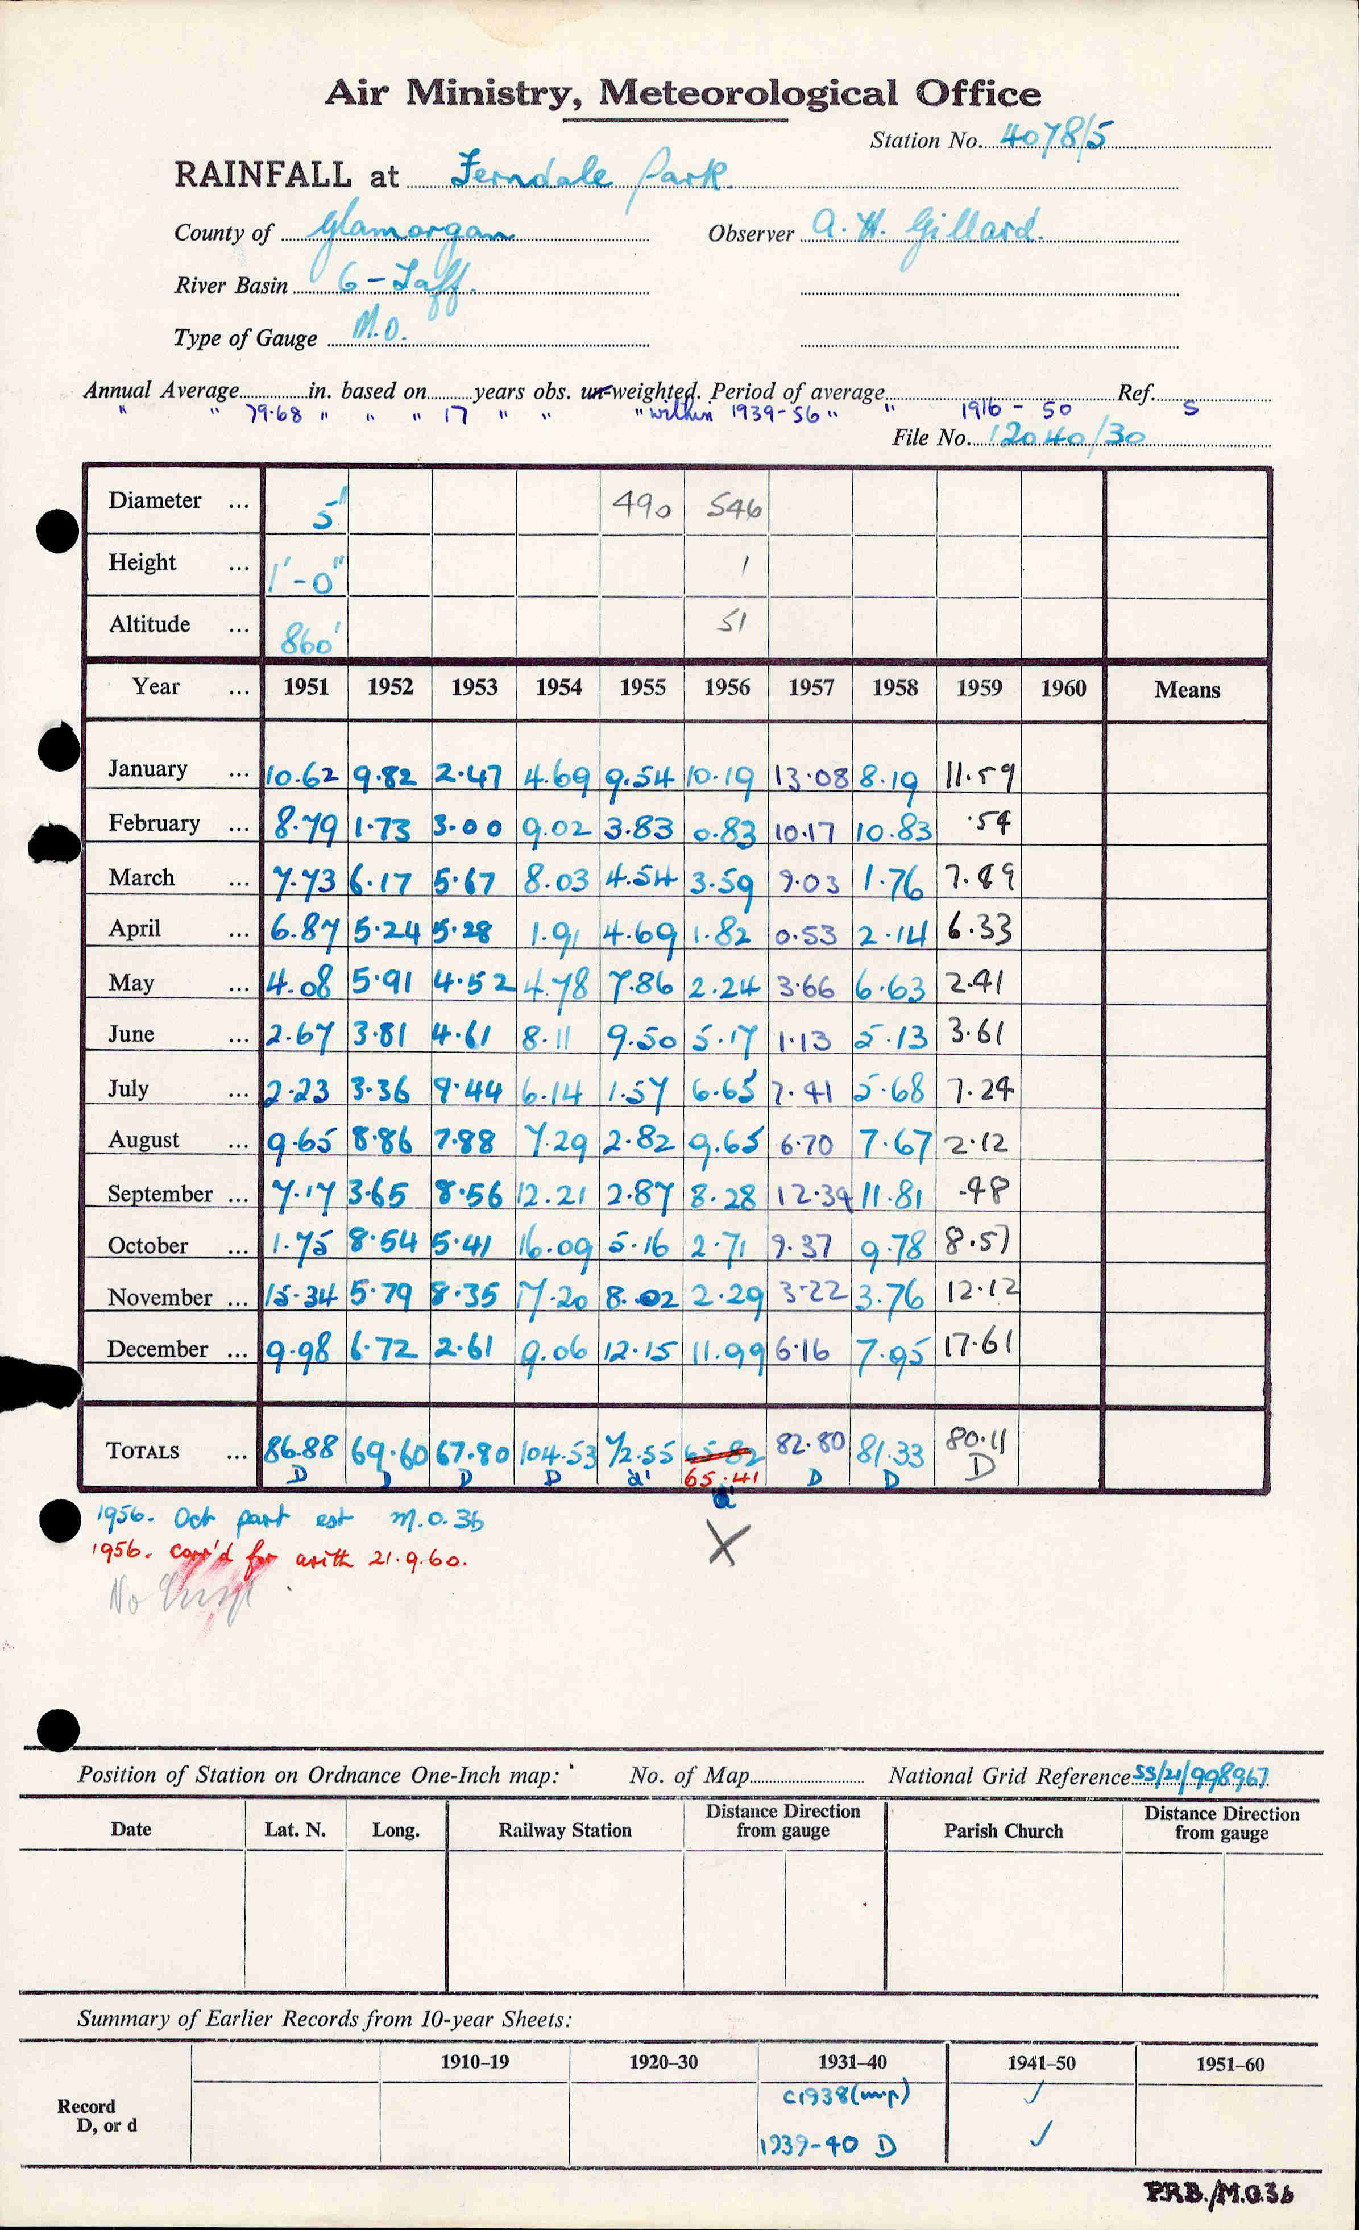 Air Ministry, Meteorological Office
Station No. 4078/5
RAINFALL at Ferndale Park.
County of Glamorgan Observer A. H. Gillard.
River Basin 6 - Taff.
Type of Gauge M.O.
Annual Average in. based on years obs. un-weighted. Period of average Ref.
" " 79.68 " " " 17 " " " within 1939-56 " " 1916 - 50 S
File No. 12040/30
Diameter ... 5" 490 546
Height ... 1'-0" 1
Altitude ... 860' 51
Year ... 1951 1952 1953 1954 1955 1956 1957 1958 1959 1960 Means
January ... 10.62 9.82 2.47 4.69 9.54 10.19 13.08 8.19 11.59
February ... 8.79 1.73 3.00 9.02 3.83 0.83 10.17 10.83 .54
March ... 7.73 6.17 5.67 8.03 4.54 3.59 9.03 1.76 7.49
April ... 6.87 5.24 5.28 1.91 4.69 1.82 0.53 2.14 6.33
May ... 4.08 5.91 4.52 4.78 7.86 2.24 3.66 6.63 2.41
June ... 2.67 3.81 4.61 8.11 9.50 5.17 1.13 5.13 3.61
July ... 2.23 3.36 9.44 6.14 1.57 6.65 7.41 5.68 7.24
August ... 9.65 8.86 7.88 7.29 2.82 9.65 6.70 7.67 2.12
September ... 7.17 3.65 8.56 12.21 2.87 8.28 12.34 11.81 .48
October ... 1.75 8.54 5.41 16.09 5.16 2.71 9.37 9.78 8.57
November ... 15.34 5.79 8.35 17.20 8.02 2.29 3.22 3.76 12.12
December ... 9.98 6.72 2.61 9.06 12.15 11.99 6.16 7.95 17.61
TOTALS ... 86.88 69.60 67.80 104.53 72.55 65.82 82.80 81.33 80.11
D D D D d' 65.41 D D D
1956. Oct part est M.O.3b
X
1956. Corr'd for arith 21.9.60.
No Insp.
Position of Station on Ordnance One-Inch map: No. of Map National Grid Reference SS/21/998967
Date Lat. N. Long. Railway Station Distance Direction from gauge Parish Church Distance Direction from gauge
Summary of Earlier Records from 10-year Sheets:
1910–19 1920–30 1931–40 1941–50 1951–60
Record c1938(m/p) ✓
D, or d 1939-40 D ✓
P.R.B./M.O.3b